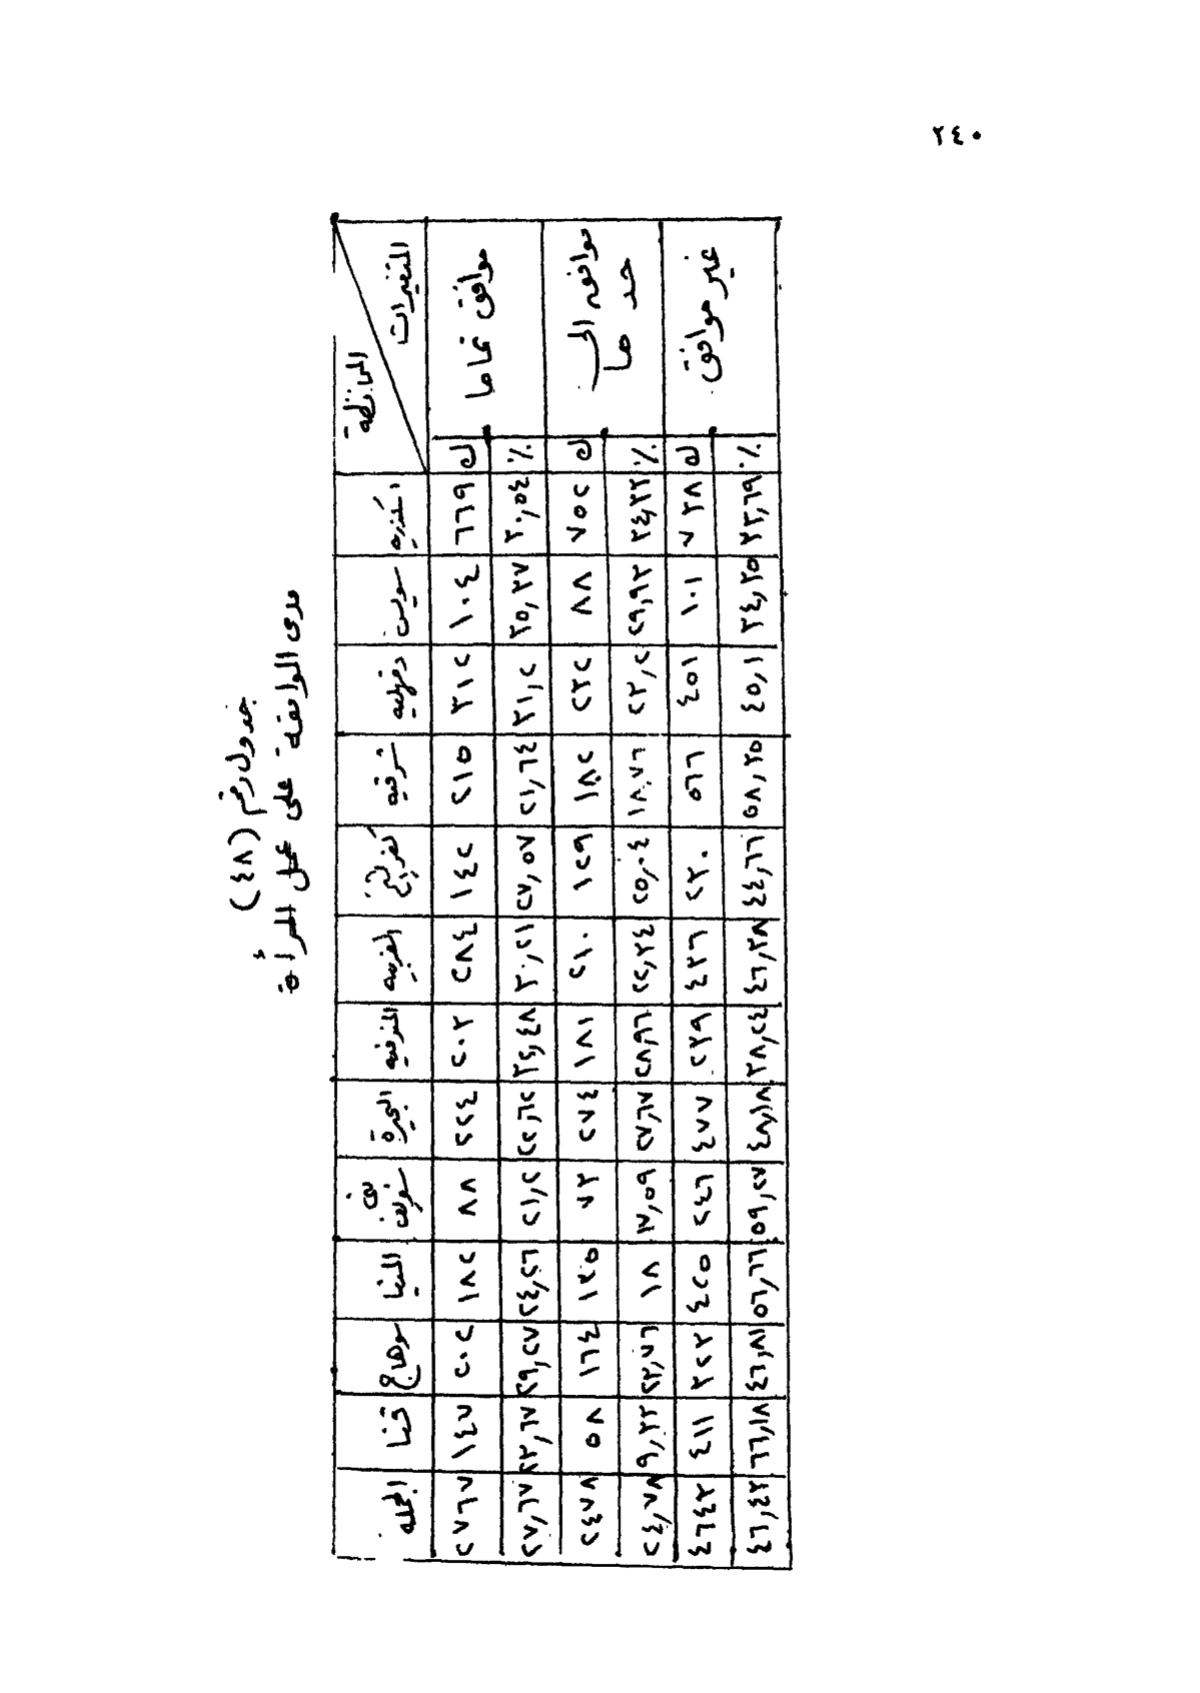 ٢٤٠
جدول رقم (٤٨)
مدى الموافقة على عمل المرأة
المتغيرات
المحافظة
اسكندريه سويس دقهليه شرقيه كفر الشيخ الغربيه المنوفيه البحيرة بنى سويف المنيا سوهاج قنا الجمله
موافق تماما
ك ٦٦٩ ١٠٤ ٣١٢ ٢١٥ ١٤٢ ٢٨٤ ٢٠٣ ٢٢٤ ٨٨ ١٨٢ ٢٠٢ ١٤٧ ٢٧٦٧
٪ ٣٠,٥٤ ٣٥,٣٧ ٣١,٢ ٢١,٦٤ ٢٧,٥٧ ٣٠,٢١ ٣٢,٤٨ ٢٢,٦٢ ٢١,٢ ٢٤,٢٦ ٢٩,٢٧ ٢٣,٦٧ ٢٧,٦٧
موافقه الى
حد ما
ك ٧٥٢ ٨٨ ٢٣٢ ١٨٢ ١٢٩ ٢١٠ ١٨١ ٢٧٤ ٧٣ ١٣٥ ١٦٤ ٥٨ ٢٤٧٨
٪ ٣٤,٣٣ ٢٩,٩٣ ٢٣,٢ ١٨,٧٦ ٢٥,٠٤ ٢٢,٣٤ ٢٨,٩٦ ٢٧,٦٧ ١٧,٥٩ ١٨ ٢٣,٧٦ ٩,٣٣ ٢٤,٧٨
غير موافق
ك ٧٣٨ ١٠١ ٤٥١ ٥٦٦ ٢٣٠ ٤٣٦ ٢٣٩ ٤٧٧ ٢٤٦ ٤٢٥ ٣٢٣ ٤١١ ٤٦٤٣
٪ ٣٣,٦٩ ٣٤,٣٥ ٤٥,١ ٥٨,٣٥ ٤٤,٦٦ ٤٦,٣٨ ٣٨,٢٤ ٤٨,١٨ ٥٩,٢٧ ٥٦,٦٦ ٤٦,٨١ ٦٦,١٨ ٤٦,٤٣